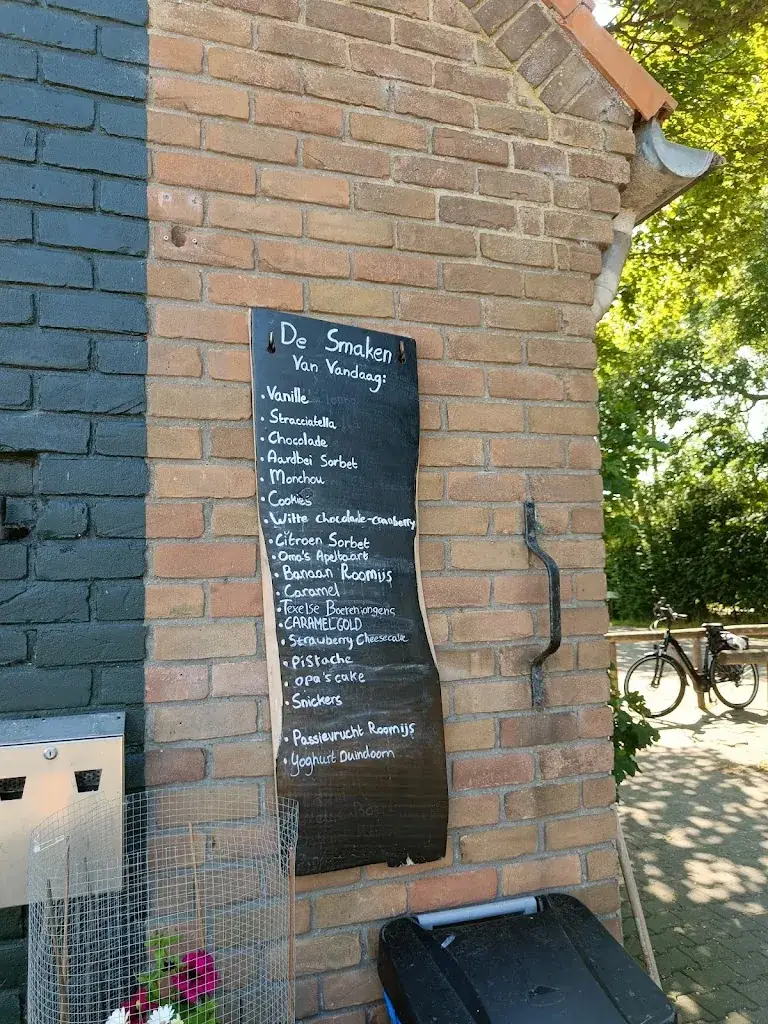 De Smaken
Van Vandaag:
• Vanille
• Stracciatella
• Chocolade
• Aardbei Sorbet
• Monchou
• Cookies
• Witte chocolade-cranberry
• Citroen Sorbet
• Oma's Apeltaart
• Banaan Roomijs
• Caramel
• Texelse Boerenjongens
• CARAMEL GOLD
• Strawberry Cheesecake
• Pistache
• opa's cake
• Snickers
• Passievrucht Roomijs
• Yoghurt Duindoorn